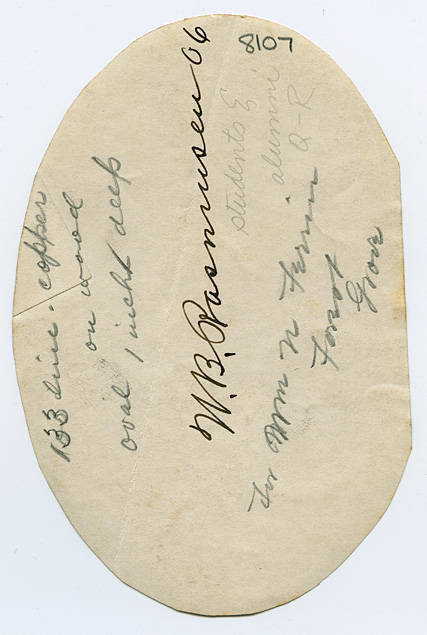 8107
W. B. Rasmussen 06
students &
alumni
Q-R
133 line. copper
on wood
oval 1 incht deep
for Wm N Ferrin
Forest
Grove